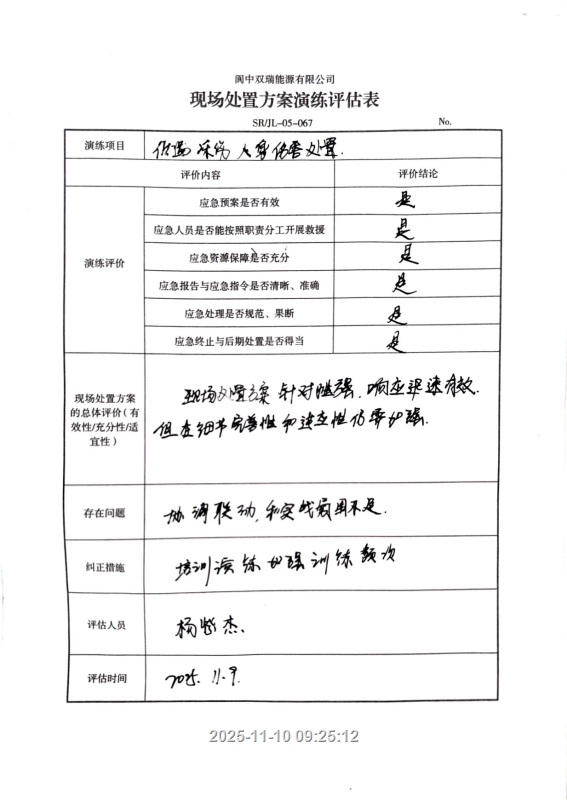 阆中双瑞能源有限公司
现场处置方案演练评估表
SR/JL-05-067 No.
演练项目 伤害处置.
评价内容 评价结论
演练评价
应急预案是否有效 是
应急人员是否能按照职责分工开展救援 是
应急资源保障是否充分 是
应急报告与应急指令是否清晰、准确 是
应急处理是否规范、果断 是
应急终止与后期处置是否得当 是
现场处置方案
的总体评价(有
效性/充分性/适
宜性)
现场处置方案 针对性强,响应迅速有效.
但在细节完善性和适应性仍需加强.
存在问题 协调联动,和实战 不足.
纠正措施 培训演练加强训练频次
评估人员 杨 杰.
评估时间 2025. 11. 9.
2025-11-10 09:25:12